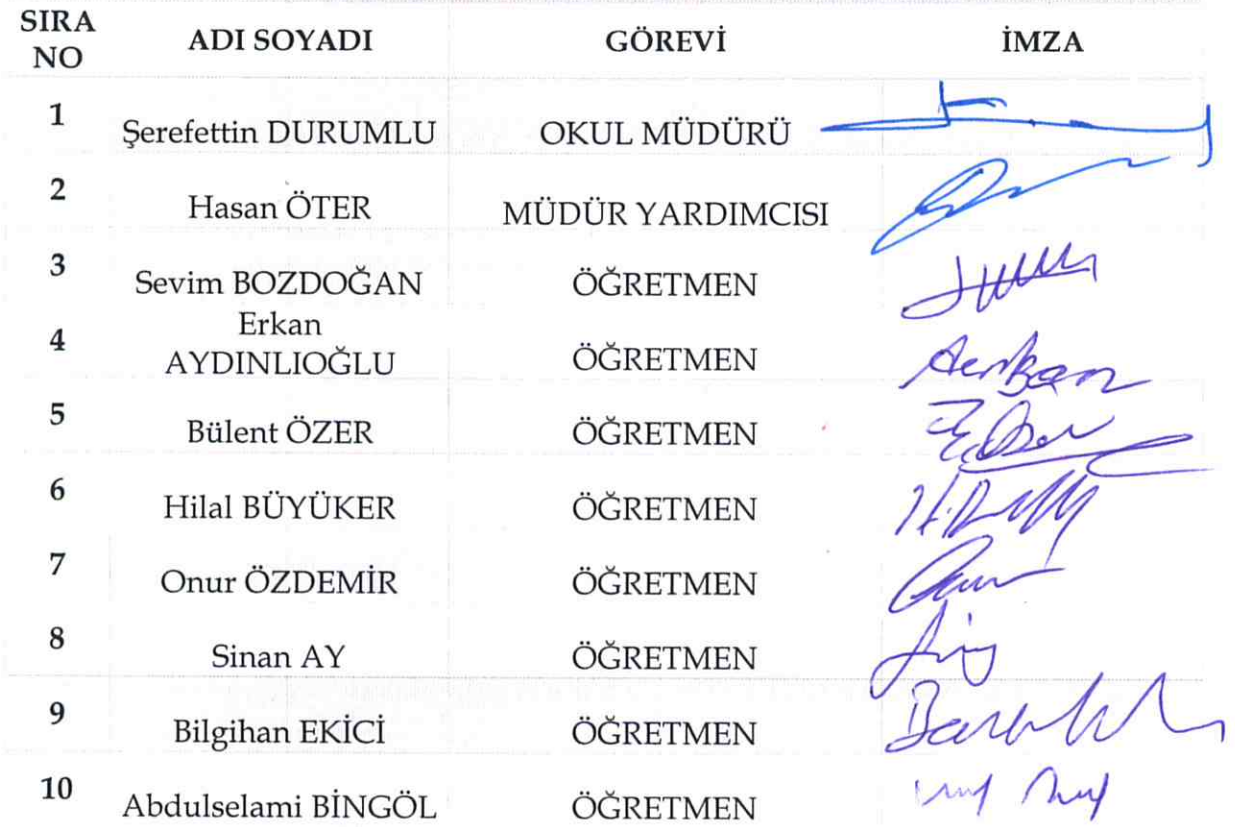 SIRA NO ADI SOYADI GÖREVİ İMZA
1 Şerefettin DURUMLU OKUL MÜDÜRÜ
2 Hasan ÖTER MÜDÜR YARDIMCISI
3 Sevim BOZDOĞAN ÖĞRETMEN
4 Erkan AYDINLIOĞLU ÖĞRETMEN
5 Bülent ÖZER ÖĞRETMEN
6 Hilal BÜYÜKER ÖĞRETMEN
7 Onur ÖZDEMİR ÖĞRETMEN
8 Sinan AY ÖĞRETMEN
9 Bilgihan EKİCİ ÖĞRETMEN
10 Abdulselami BİNGÖL ÖĞRETMEN